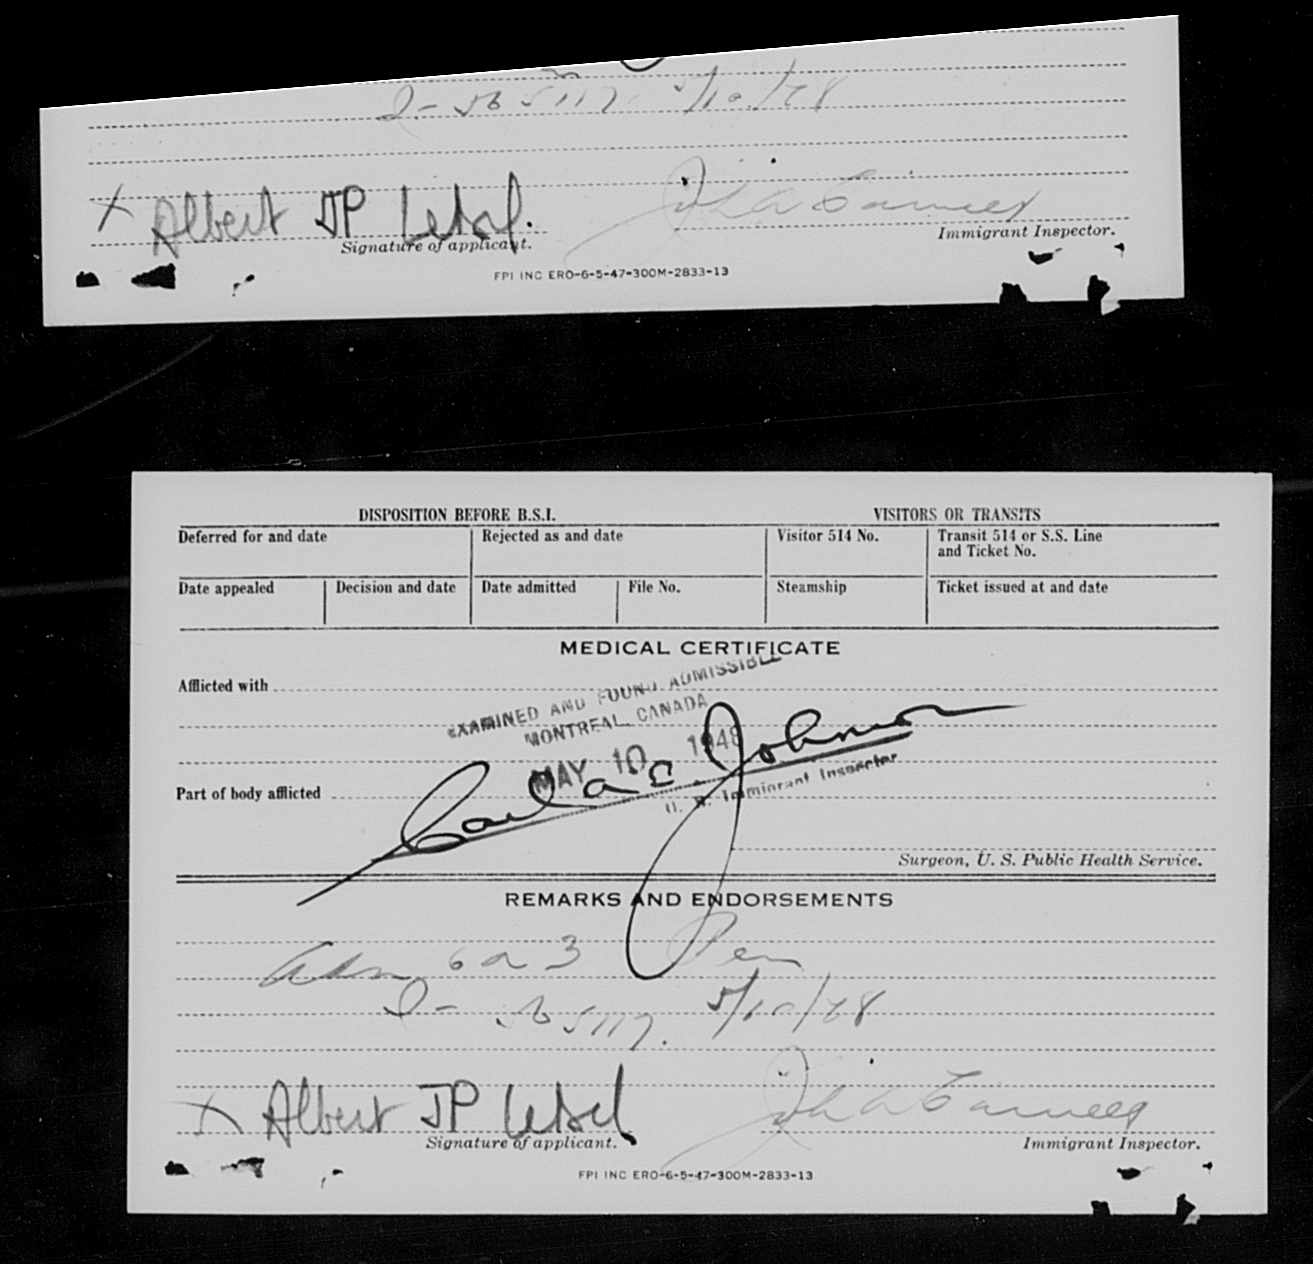 5/10/48
X Albert JP
Signature of applicant.
Immigrant Inspector.
FPI INC ERO-6-5-47-300M-2833-13
DISPOSITION BEFORE B.S.I. VISITORS OR TRANSITS
Deferred for and date Rejected as and date Visitor 514 No. Transit 514 or S.S. Line
and Ticket No.
Date appealed Decision and date Date admitted File No. Steamship Ticket issued at and date
MEDICAL CERTIFICATE
Afflicted with
EXAMINED AND FOUND ADMISSIBLE
MONTREAL CANADA
MAY 10 1948
Johnson
U. S. Immigrant Inspector
Part of body afflicted
Surgeon, U. S. Public Health Service.
REMARKS AND ENDORSEMENTS
Adm 6 a 3 Per
5/10/48
X Albert JP
Signature of applicant.
Immigrant Inspector.
FPI INC ERO-6-5-47-300M-2833-13